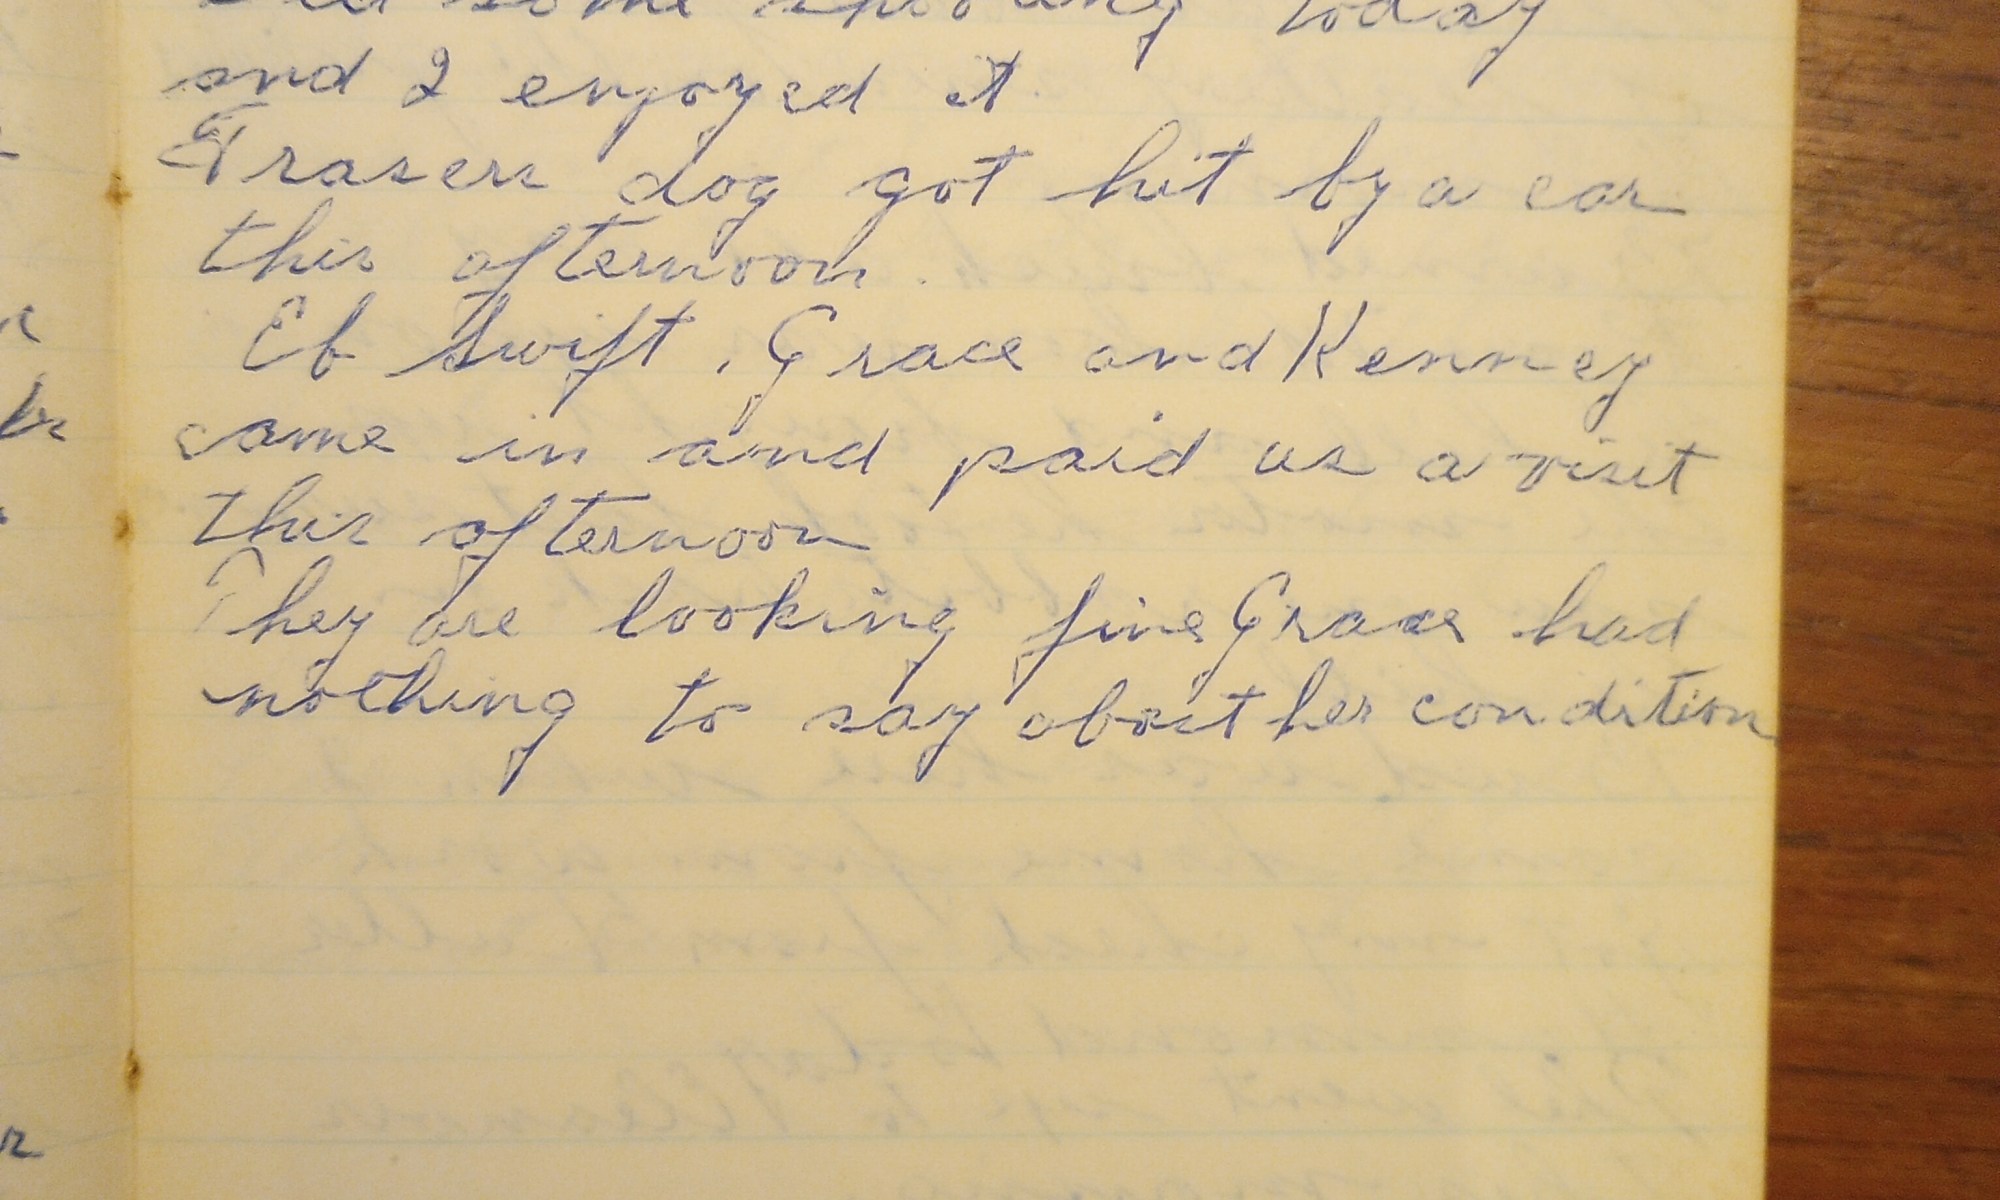 Did some shooting today
and I enjoyed it
Frasers dog got hit by a car
this afternoon.
Eb Swift, Grace and Kenney
came in and paid us a visit
this afternoon
They are looking fine Grace had
nothing to say about her condition